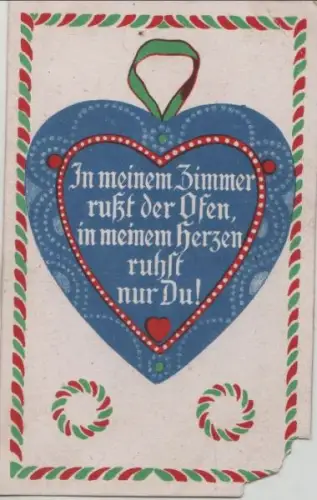 In meinem Zimmer
rußt der Ofen,
in meinem Herzen
ruhst
nur Du!